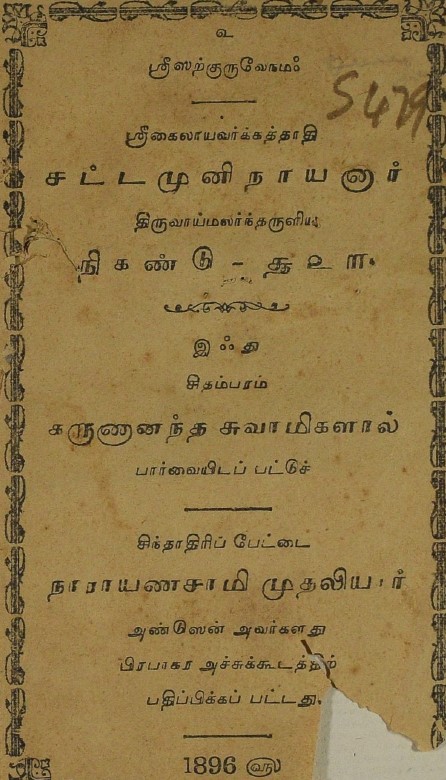 உ
ஸ்ரீஸற்குருவேநமஃ
S 479
ஸ்ரீகைலாயவர்க்கத்தாதி
சட்டமுனிநாயனார்
திருவாய்மலர்ந்தருளிய
நிகண்டு - சூஉ௱
இஃது
சிதம்பரம்
கருணானந்த சுவாமிகளால்
பார்வையிடப் பட்டுச்
சிந்தாதிரிப் பேட்டை
நாராயணசாமி முதலியார்
அண்டுஸன் அவர்களது
பிரபாகர அச்சுக்கூடத்திற்
பதிப்பிக்கப் பட்டது.
1896 ௵